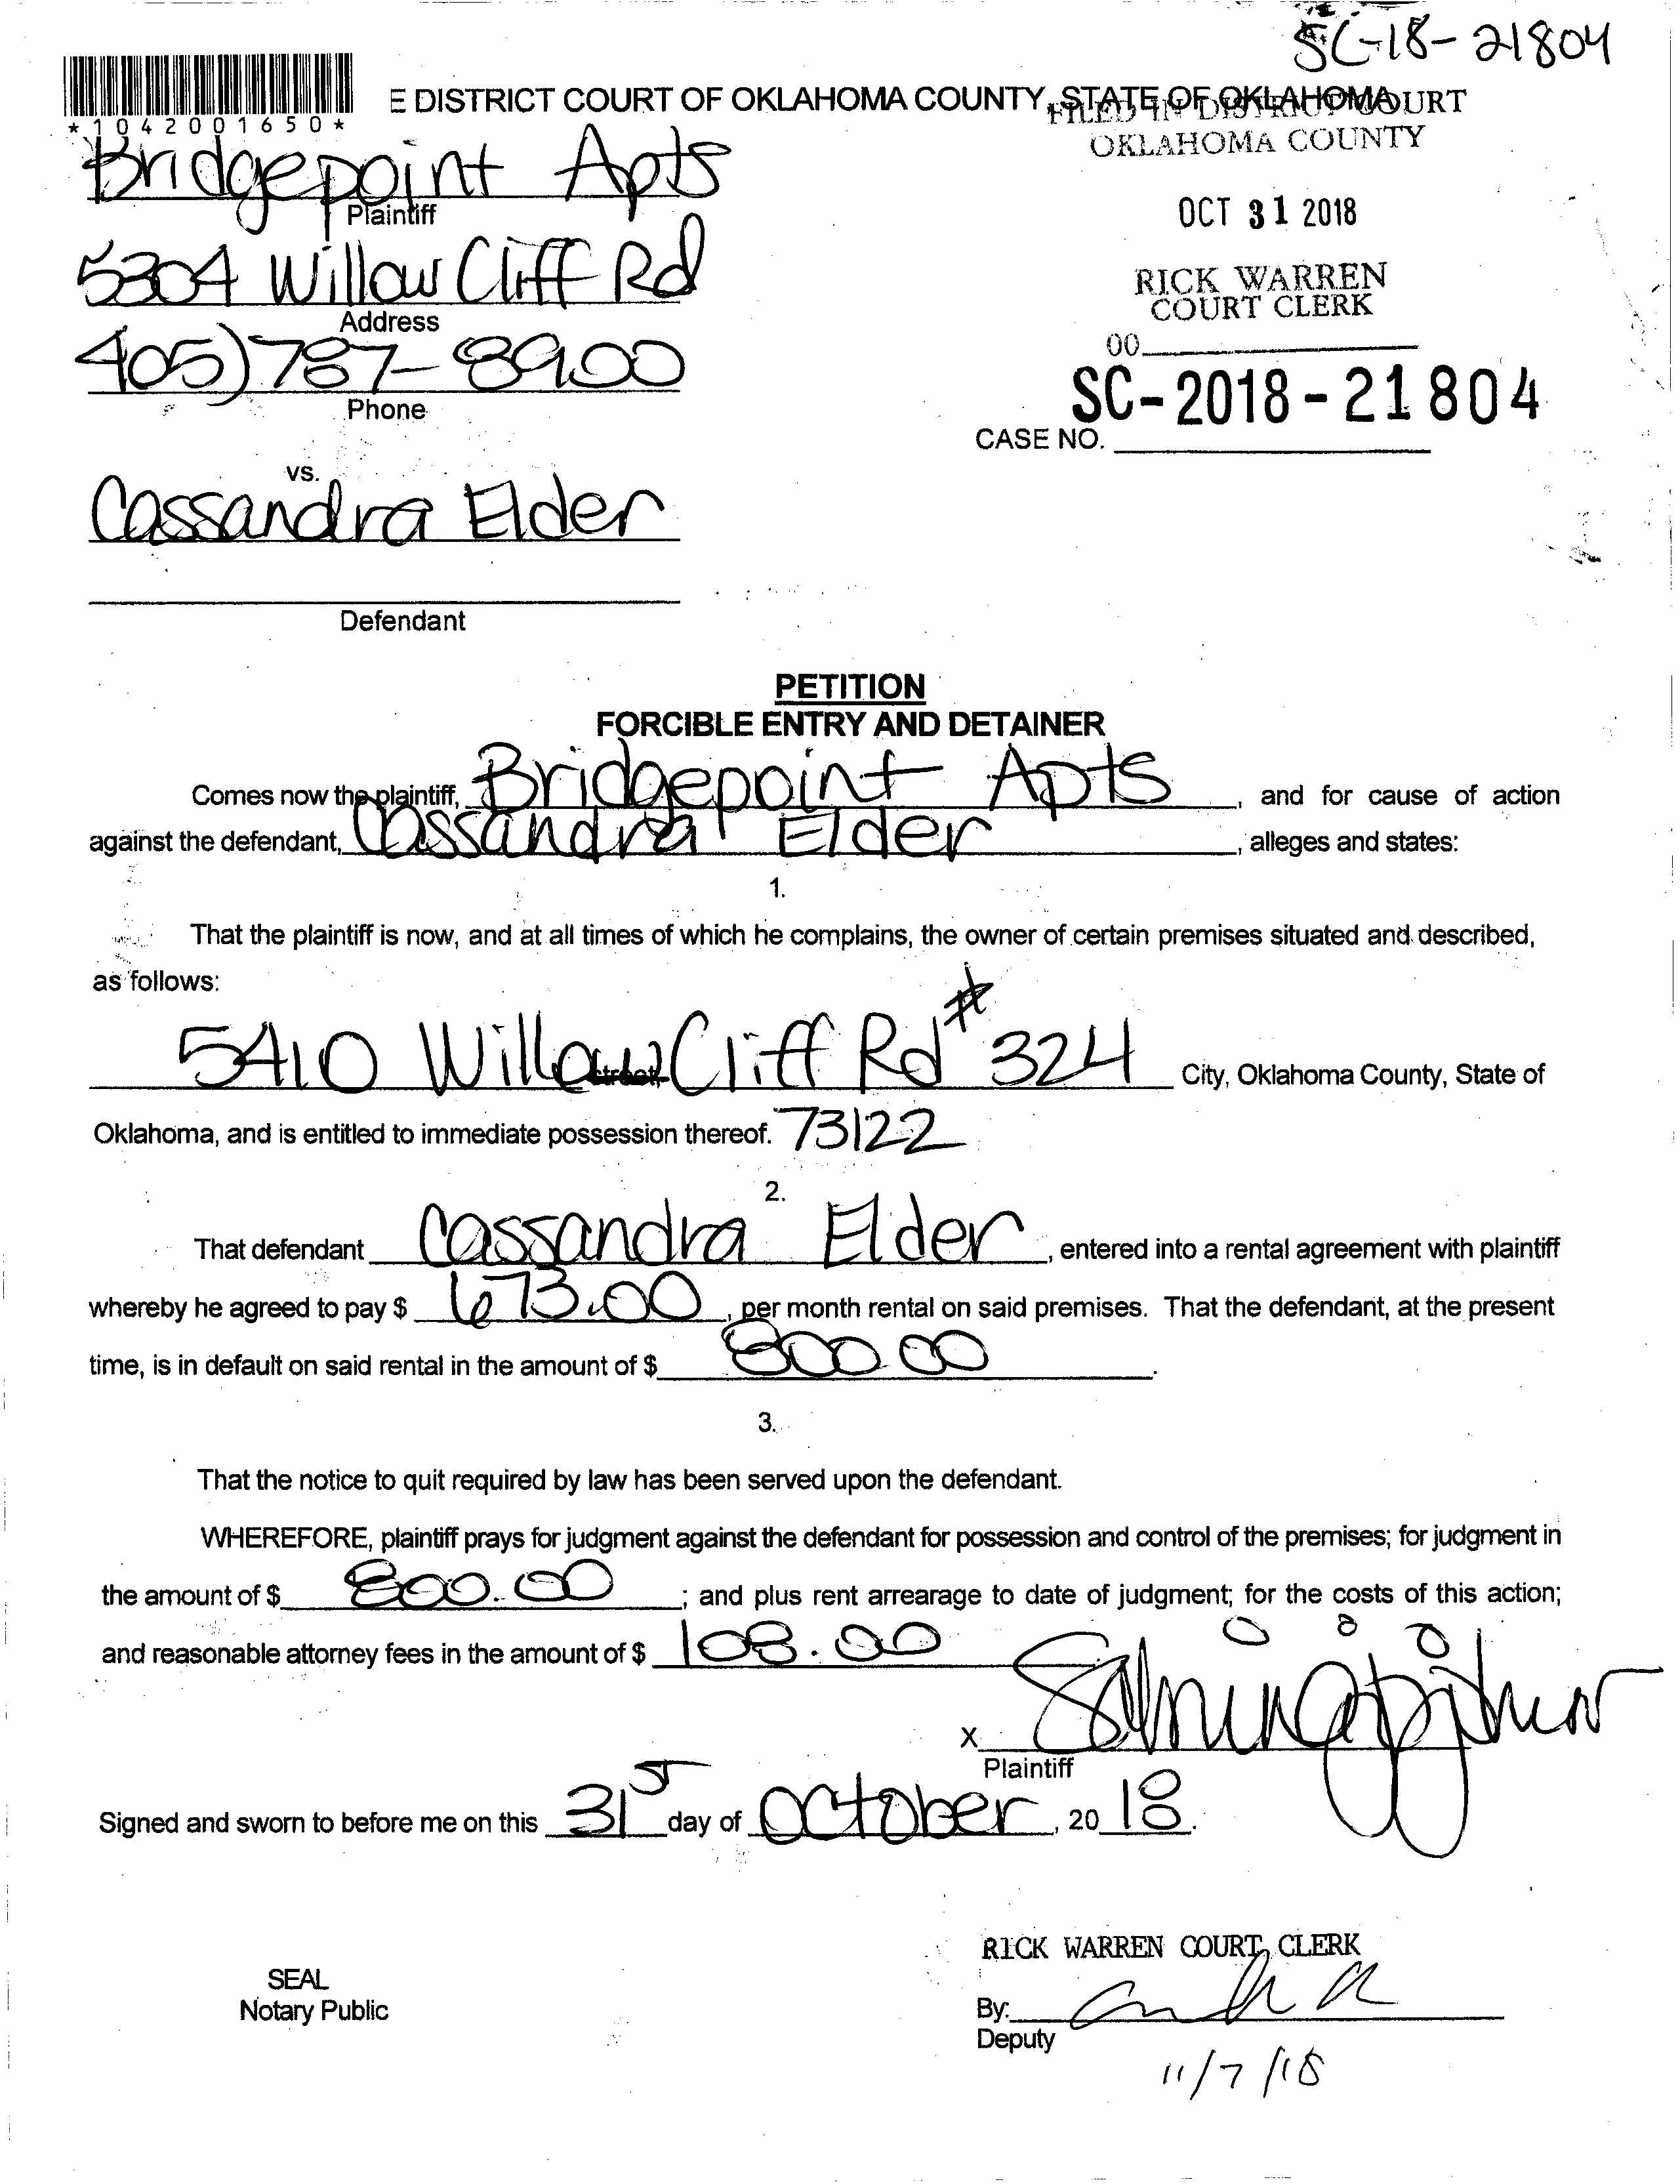 SC-18-21804
E DISTRICT COURT OF OKLAHOMA COUNTY, STATE OF OKLAHOMA
FILED IN DISTRICT COURT
OKLAHOMA COUNTY
*1042001650*
Bridgepoint Apts
Plaintiff
OCT 31 2018
5304 Willow Cliff Rd
Address
RICK WARREN
COURT CLERK
405) 787-8900
Phone
00
SC-2018-21804
CASE NO.
vs.
Cassandra Elder
Defendant
PETITION
FORCIBLE ENTRY AND DETAINER
Comes now the plaintiff, Bridgepoint Apts, and for cause of action
against the defendant, Cassandra Elder, alleges and states:
1.
That the plaintiff is now, and at all times of which he complains, the owner of certain premises situated and described,
as follows:
5410 Willow Cliff Rd # 324 City, Oklahoma County, State of
street,
Oklahoma, and is entitled to immediate possession thereof. 73122
2.
That defendant Cassandra Elder, entered into a rental agreement with plaintiff
whereby he agreed to pay $ 673.00, per month rental on said premises. That the defendant, at the present
time, is in default on said rental in the amount of $ 800.00.
3.
That the notice to quit required by law has been served upon the defendant.
WHEREFORE, plaintiff prays for judgment against the defendant for possession and control of the premises; for judgment in
the amount of $ 800.00; and plus rent arrearage to date of judgment; for the costs of this action;
and reasonable attorney fees in the amount of $ 108.00
X
Plaintiff
Signed and sworn to before me on this 31st day of October, 2018.
RICK WARREN COURT CLERK
SEAL
Notary Public
By:
Deputy
11/7/18